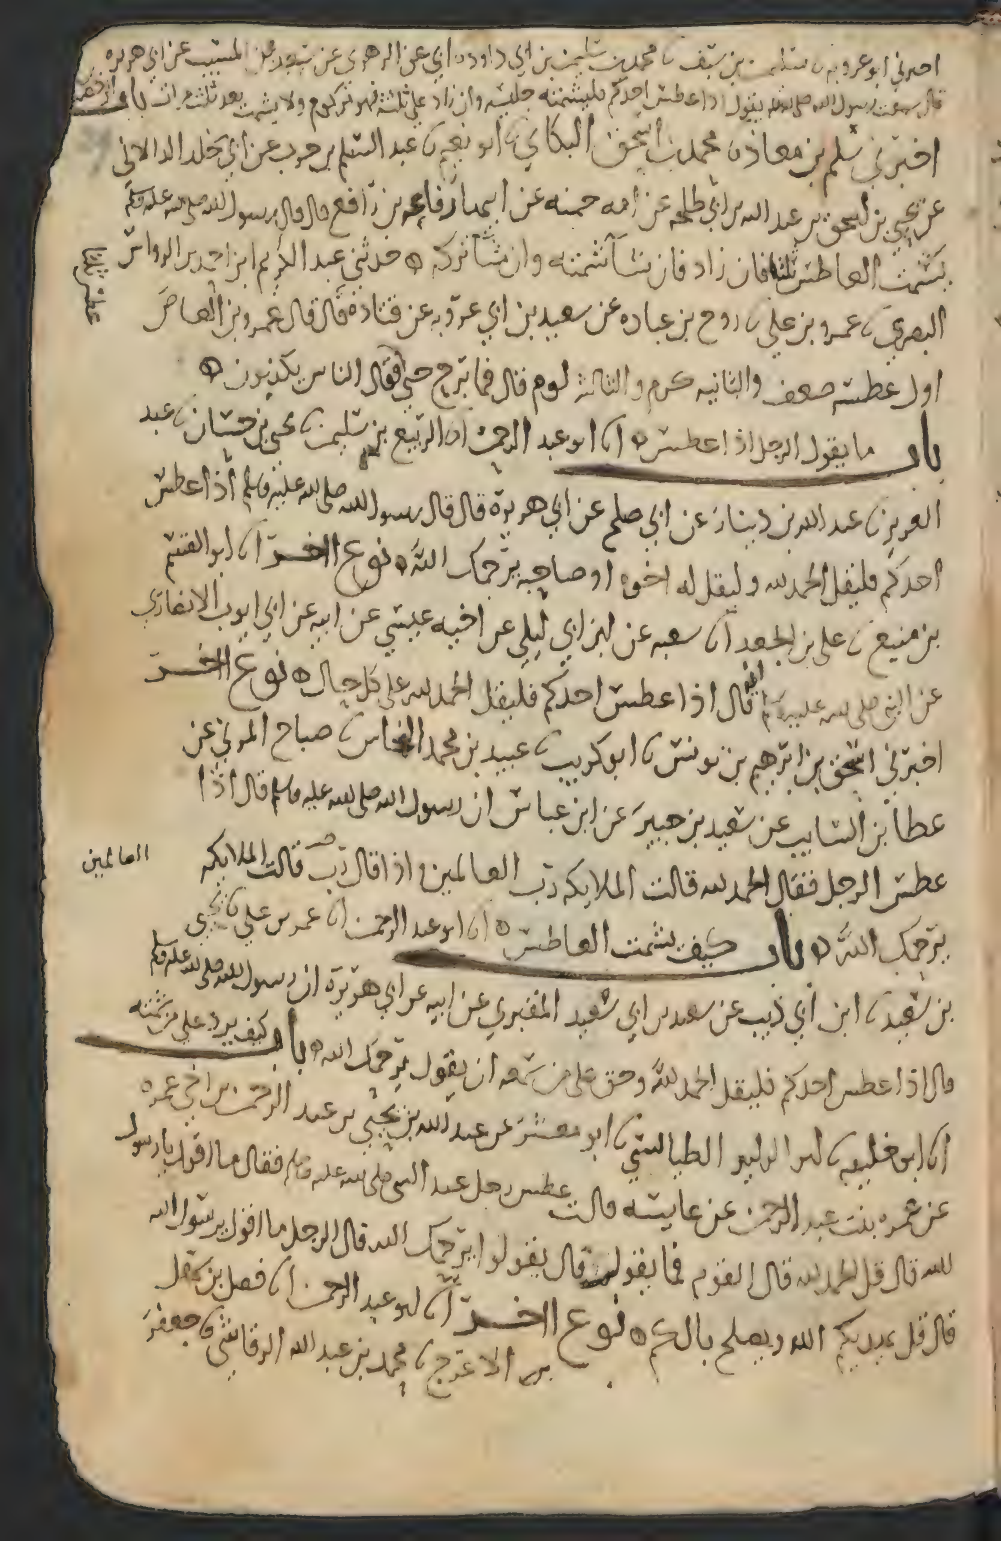 اخبرني ابو عروبه ثنا سليمن بن سيف ثنا محمد بن سليمن بن ابي داود ثنا ابي عن الزهري عن سعيد بن المسيب عن ابي هريره
قال سمعت رسول الله صلى الله عليه يقول اذا عطس احدكم فليشمته جليسه وان زاد على ثلثة فهو مزكوم ولا يشمت بعد ثلث مرات باب
اخبرني سلم بن معاذ ثنا محمد بن اسحق البكاي ثنا ابو نعيم ثنا عبد السلم بن حرب عن ابي خلد الدالاني
عن يحيى بن اسحق بن عبد الله بن ابي طلحه عن امه حميده عن ابيها رفاعه بن رافع قال قال رسول الله صلى الله عليه وسلم
يشمت العاطس ثلثا فان زاد فان شا شمته وان شا تركه ه حدثني عبد الكريم ابن احمد بن الرواس
البصري ثنا عمرو بن علي ثنا روح بن عباده عن سعيد بن ابي عروبه عن قتاده قال قال عمرو بن العاص
اول عطسه ضعف والثانيه كرم والثالثه لوم قال فما برح حتى قال الناس يكذبون ه
باب ما يقول الرجل اذا عطس ه انا ابو عبد الرحمن انا الربيع بن سليمن ثنا يحيى بن حسان ثنا عبد
العزيز ثنا عبد الله بن دينار عن ابي صلح عن ابي هريرة قال قال رسول الله صلى الله عليه وسلم اذا عطس
احدكم فليقل الحمد لله وليقل له اخوه او صاحبه يرحمك الله ه نوع اخر انا ابو القسم
بن منيع ثنا علي بن الجعد انا شعبه عن ابن ابي ليلى عن اخيه عيسى عن ابيه عن ابي ايوب الانصاري
عن النبي صلى الله عليه وسلم انه قال اذا عطس احدكم فليقل الحمد لله على كل حال ه نوع اخر
اخبرني اسحق بن ابرهيم بن يونس ثنا ابو كريب ثنا عبيد بن محمد النحاس ثنا صباح المزني عن
عطا بن السايب عن سعيد بن جبير عن ابن عباس ان رسول الله صلى الله عليه وسلم قال اذا
عطس الرجل فقال الحمد لله قالت الملايكه رب العالمين واذا قال رب قالت الملايكه
العالمين
يرحمك الله ه باب كيف يشمت العاطس ه انا ابو عبد الرحمن انا عمرو بن علي ثنا يحيى
بن سعيد ثنا ابن ابي ذيب عن سعيد بن ابي سعيد المقبري عن ابيه عن ابي هريرة ان رسول الله صلى الله عليه وسلم
قال اذا عطس احدكم فليقل الحمد لله وحق على من سمعه ان يقول يرحمك الله ه باب كيف يرد على من شمته
انا ابو خليفه ثنا ابو الوليد الطيالسي ثنا ابو معشر عن عبد الله بن يحيى بن عبد الرحمن بن اخي عمره
عن عمره بنت عبد الرحمن عن عايشه قالت عطس رجل عند النبي صلى الله عليه وسلم فقال ما اقول يا رسول
الله قال قل الحمد لله قال القوم فما يقول قال يقولوا يرحمك الله قال الرجل ما اقول يرسول الله
قال قل يهديكم الله ويصلح بالكم ه نوع اخر انا ابو عبد الرحمن انا فضل بن سهل
بن الاعرج ثنا محمد بن عبد الله الرقاشي ثنا جعفر